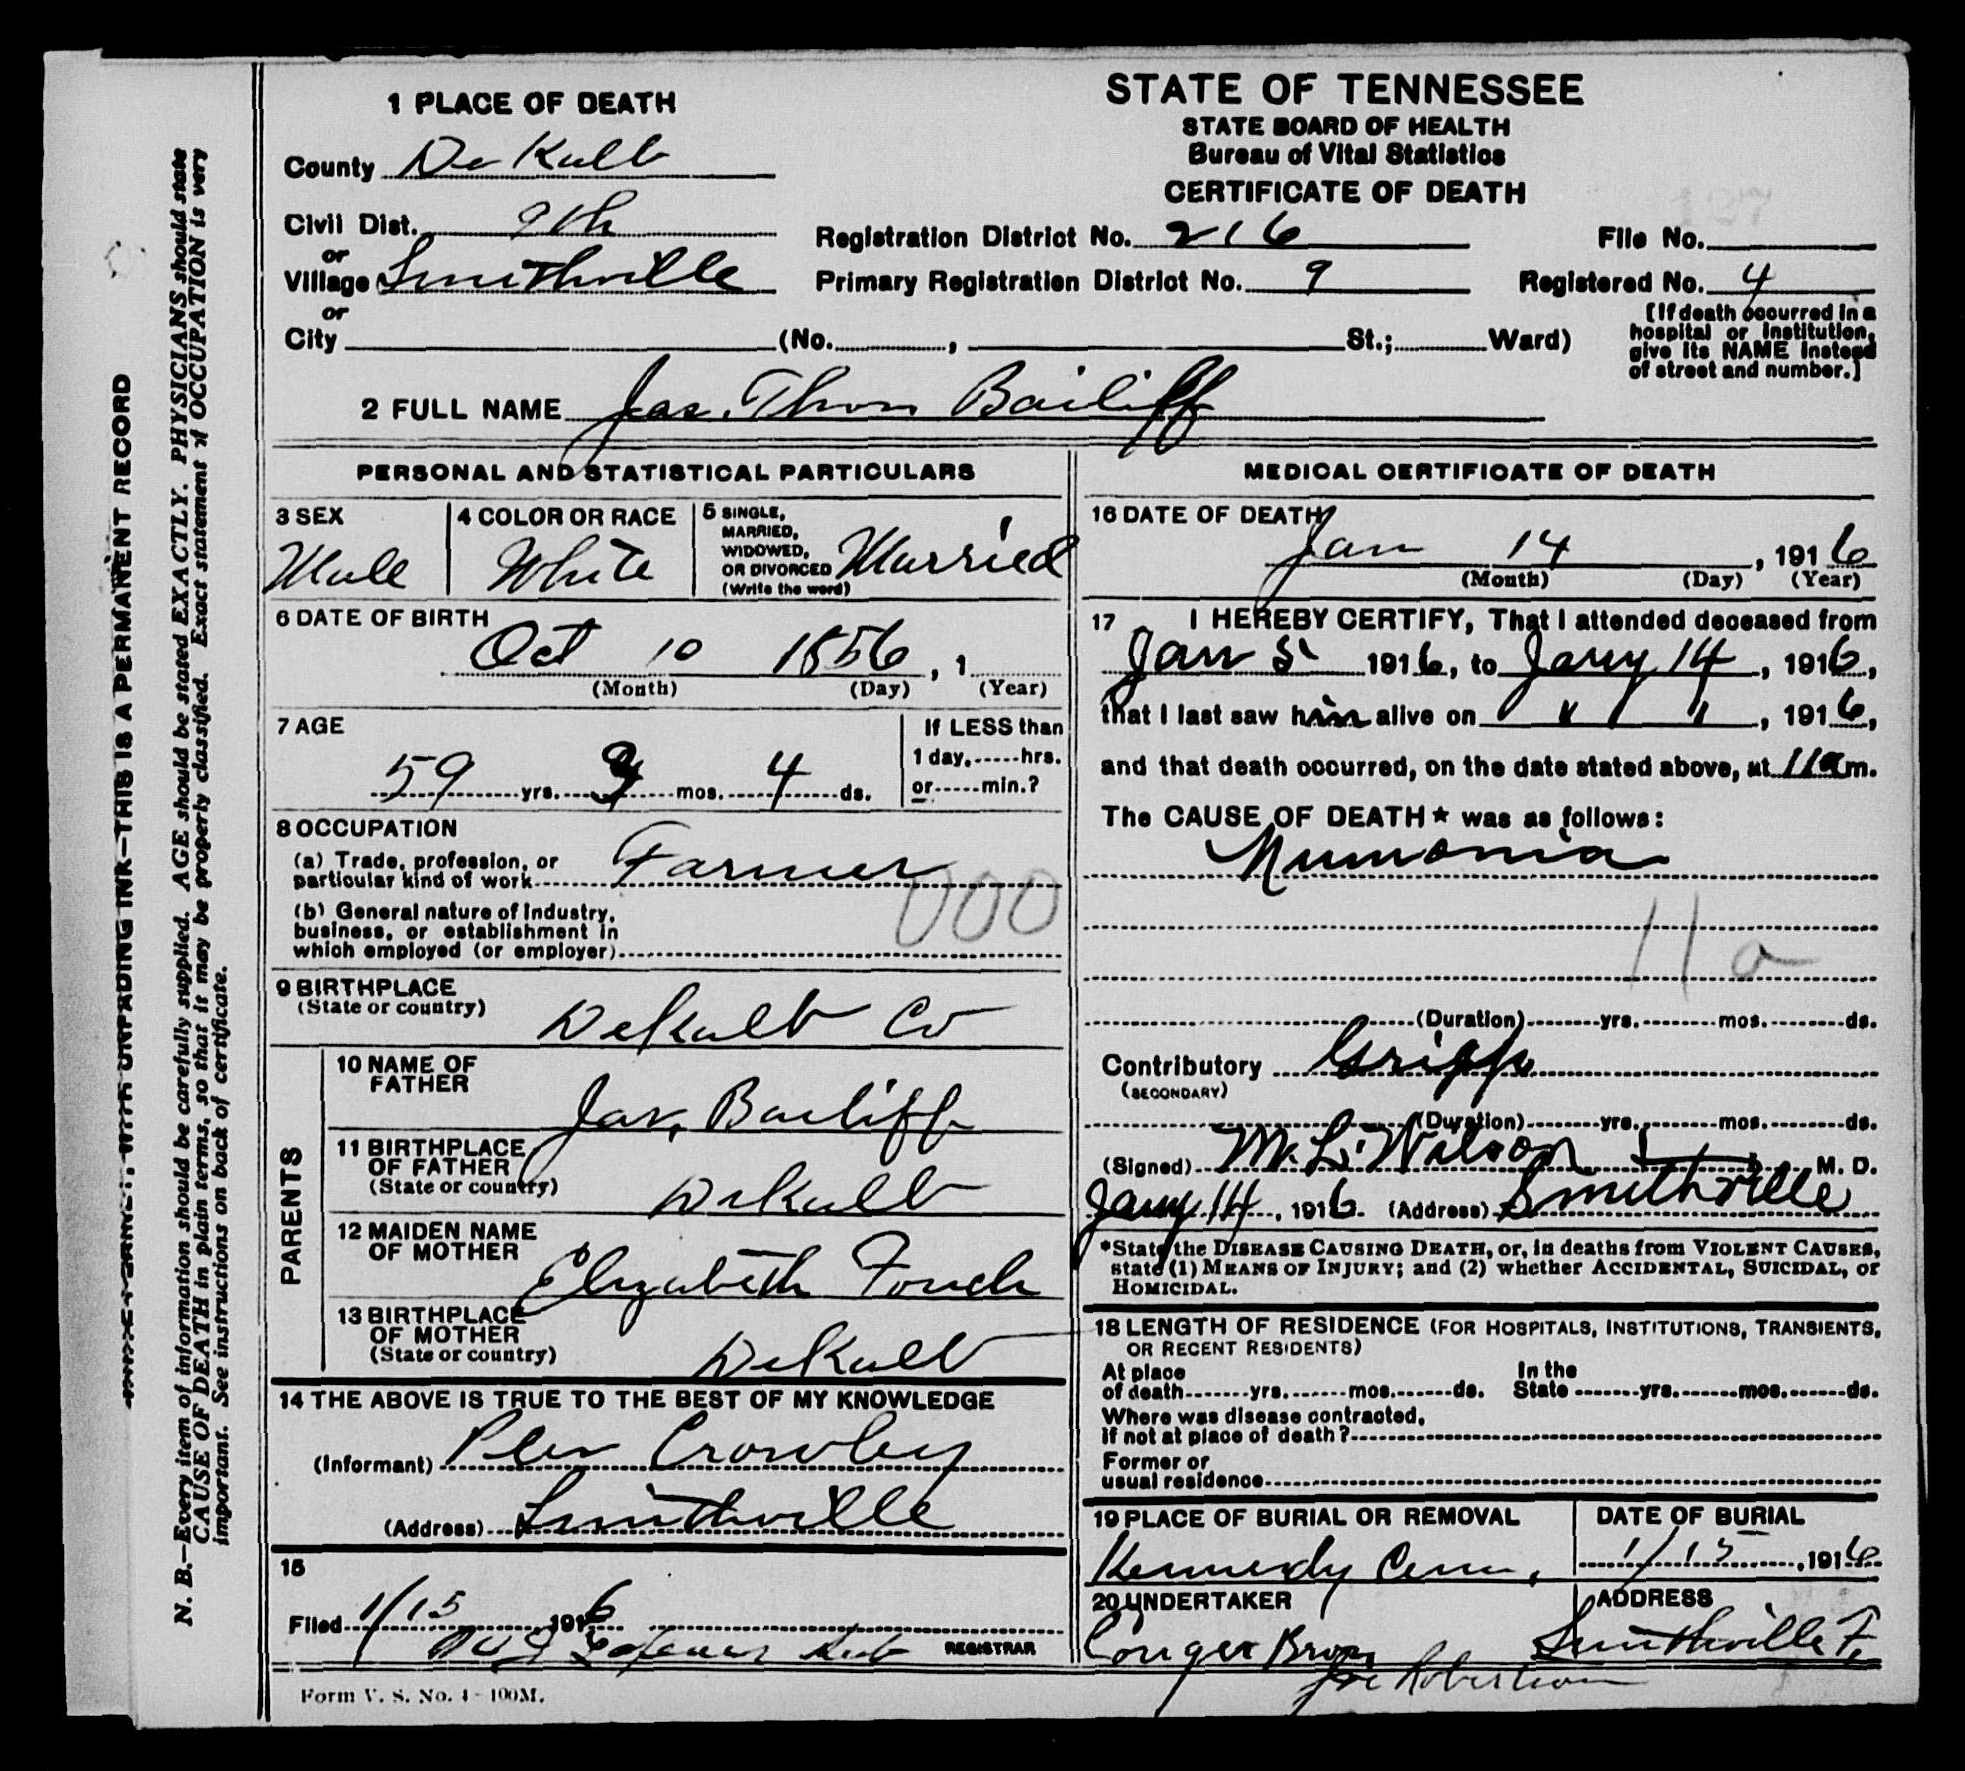 1 PLACE OF DEATH
County De Kalb
Civil Dist. 9th
or
Village Smithville
or
City (No. , St.; Ward)
STATE OF TENNESSEE
STATE BOARD OF HEALTH
Bureau of Vital Statistics
CERTIFICATE OF DEATH
Registration District No. 216 File No.
Primary Registration District No. 9 Registered No. 4
[If death occurred in a
hospital or institution,
give its NAME instead
of street and number.]
2 FULL NAME Jas. Thom Bailiff
PERSONAL AND STATISTICAL PARTICULARS
3 SEX
Male
4 COLOR OR RACE
White
5 SINGLE,
MARRIED,
WIDOWED,
OR DIVORCED
(Write the word)
Married
6 DATE OF BIRTH
Oct 10 1856, 1
(Month) (Day) (Year)
7 AGE
59 yrs. 3 mos. 4 ds.
If LESS than
1 day, hrs.
or min.?
8 OCCUPATION
(a) Trade, profession, or
particular kind of work Farmer
000
(b) General nature of industry,
business, or establishment in
which employed (or employer)
9 BIRTHPLACE
(State or country)
DeKalb Co
PARENTS
10 NAME OF
FATHER
Jas, Bailiff
11 BIRTHPLACE
OF FATHER
(State or country)
DeKalb
12 MAIDEN NAME
OF MOTHER
Elizabeth Fouch
13 BIRTHPLACE
OF MOTHER
(State or country)
DeKalb
14 THE ABOVE IS TRUE TO THE BEST OF MY KNOWLEDGE
(Informant) Crowley
(Address) Smithville
15
Filed 1/15 1916
REGISTRAR
Form V. S. No. 4-100M.
MEDICAL CERTIFICATE OF DEATH
16 DATE OF DEATH
Jan 14, 1916
(Month) (Day) (Year)
17 I HEREBY CERTIFY, That I attended deceased from
Jan 5 1916, to Jany 14, 1916,
that I last saw him alive on " ", 1916,
and that death occurred, on the date stated above, at 11a m.
The CAUSE OF DEATH* was as follows:
Numonia
11 a
(Duration) yrs. mos. ds.
Contributory Gripp
(SECONDARY)
(Duration) yrs. mos. ds.
(Signed) M. L. Wilson M. D.
Jany 14, 1916. (Address) Smithville
*State the DISEASE CAUSING DEATH, or, in deaths from VIOLENT CAUSES,
state (1) MEANS OF INJURY; and (2) whether ACCIDENTAL, SUICIDAL, or
HOMICIDAL.
18 LENGTH OF RESIDENCE (FOR HOSPITALS, INSTITUTIONS, TRANSIENTS,
OR RECENT RESIDENTS)
At place
of death yrs. mos. ds.
In the
State yrs. mos. ds.
Where was disease contracted,
if not at place of death?
Former or
usual residence
19 PLACE OF BURIAL OR REMOVAL
Kennedy Cem,
DATE OF BURIAL
1/15, 1916
20 UNDERTAKER
Conger Bros,
ADDRESS
Smithville T.
Joe Robertson
THIS IS A PERMANENT RECORD
N. B.—Every item of information should be carefully supplied. AGE should be stated EXACTLY. PHYSICIANS should state
CAUSE OF DEATH in plain terms, so that it may be properly classified. Exact statement of OCCUPATION is very
important. See instructions on back of certificate.